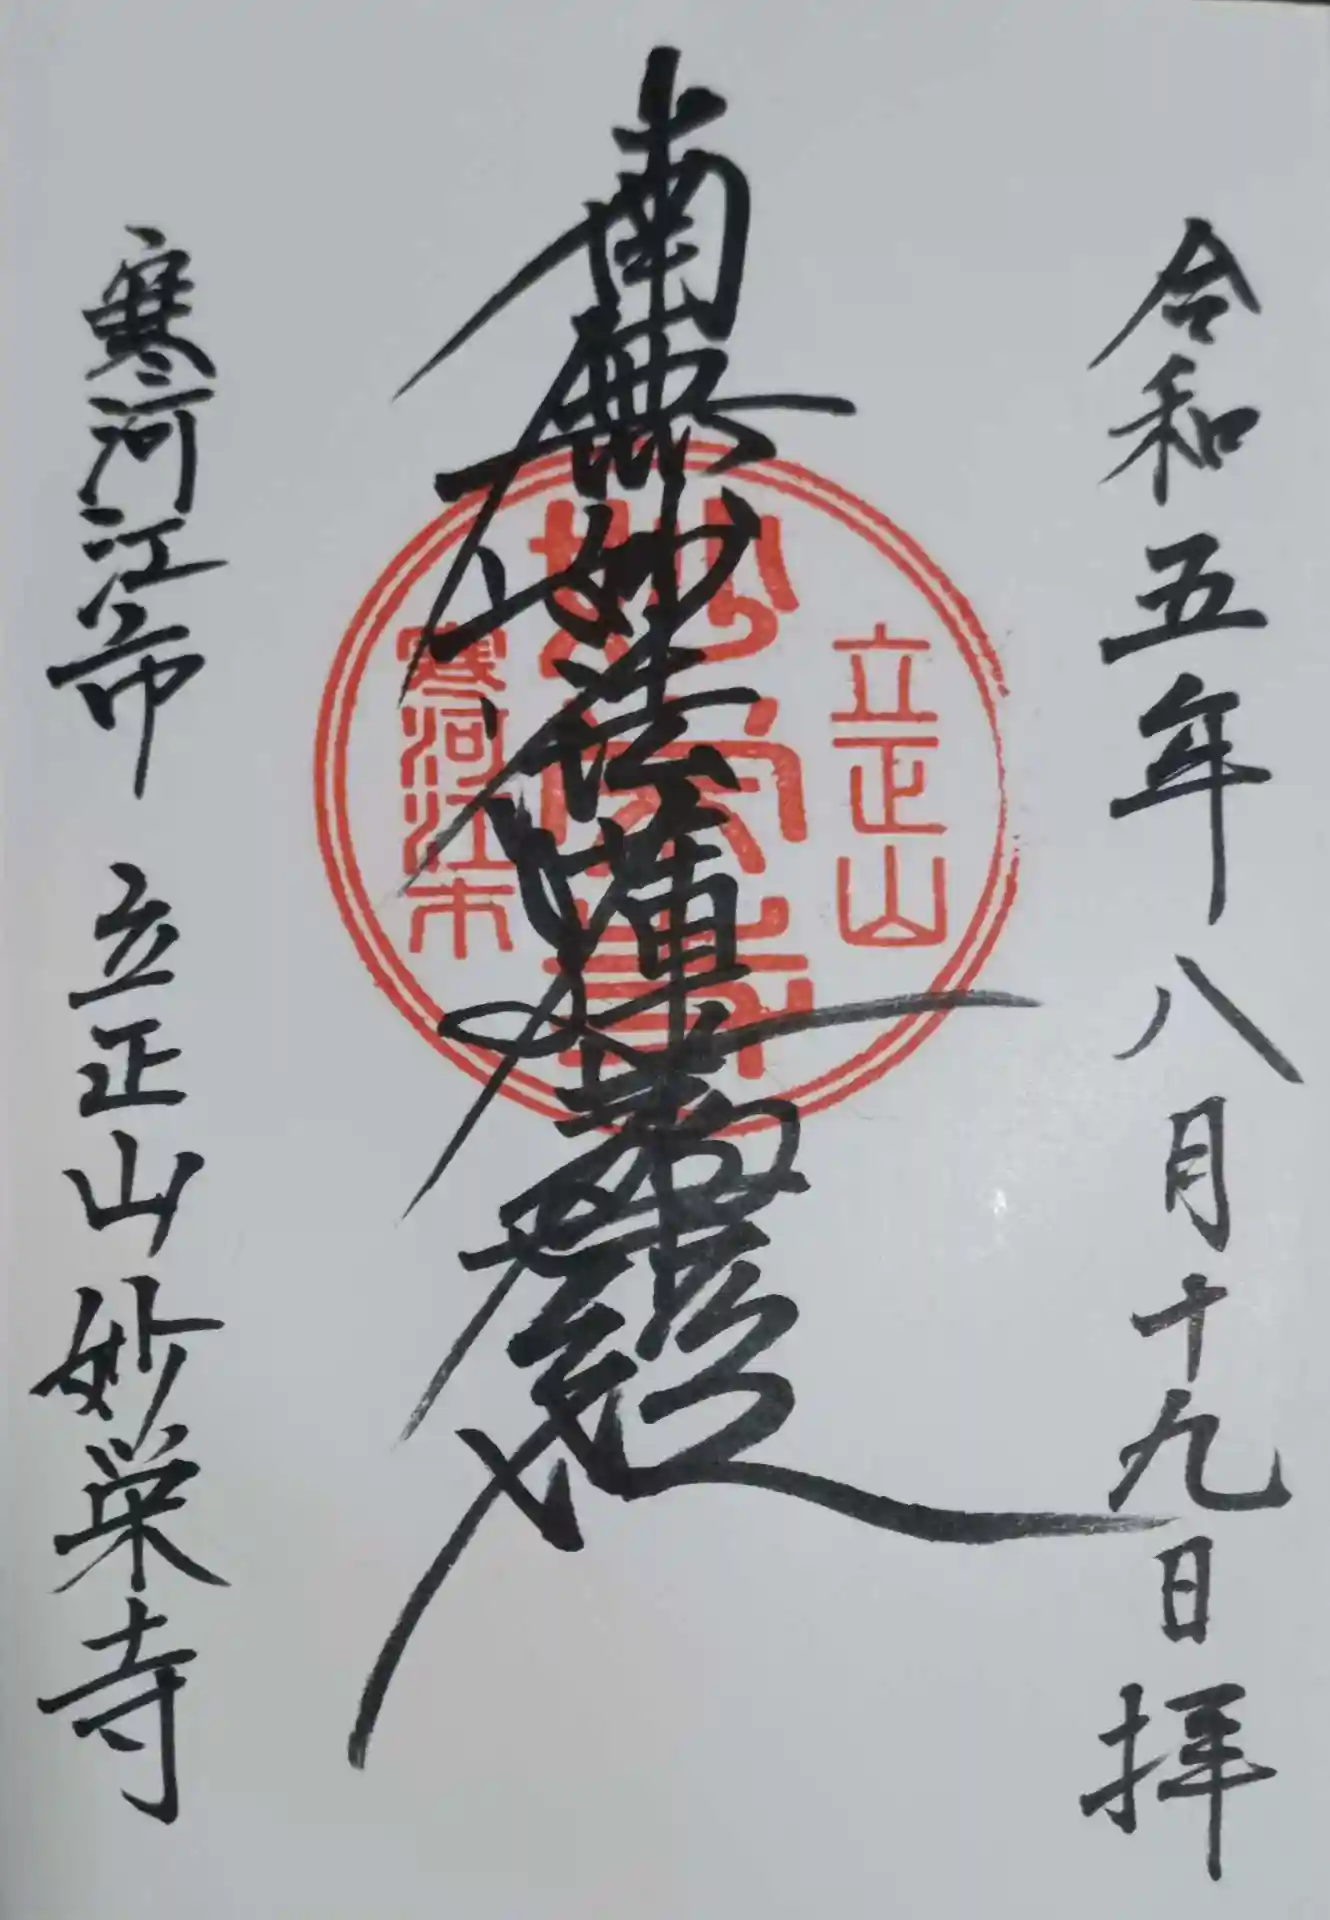 令和五年八月十九日 拝
南無妙法蓮華経
立正山
妙栄寺
寒河江市
寒河江市 立正山 妙栄寺